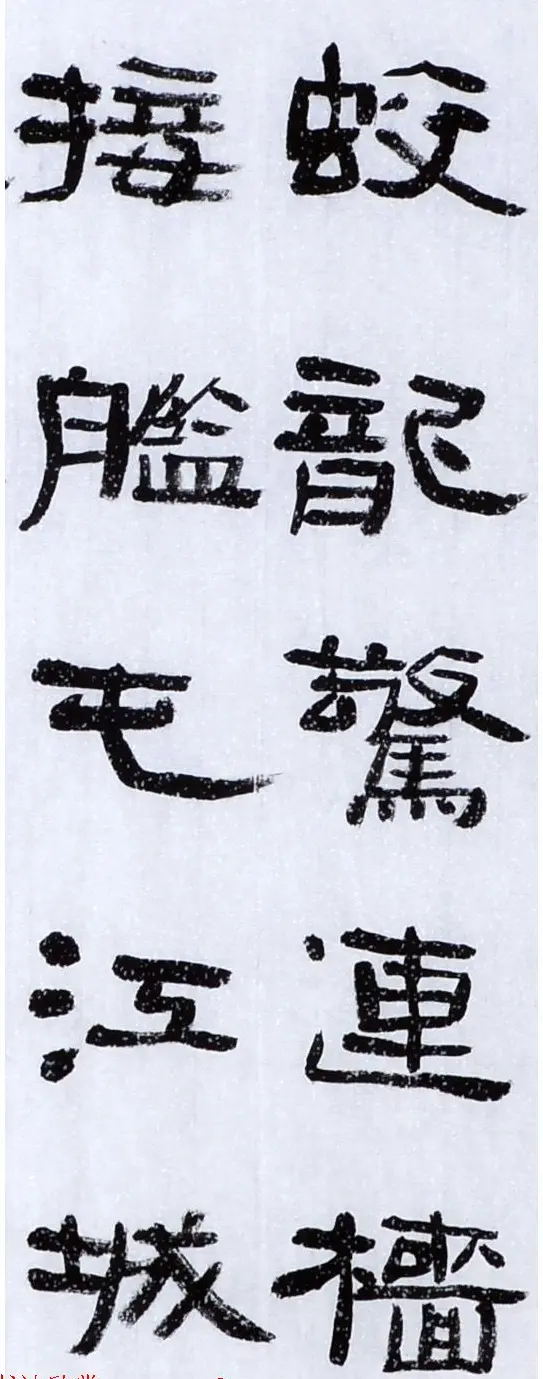 蛟龍驚連檣
接艦屯江城